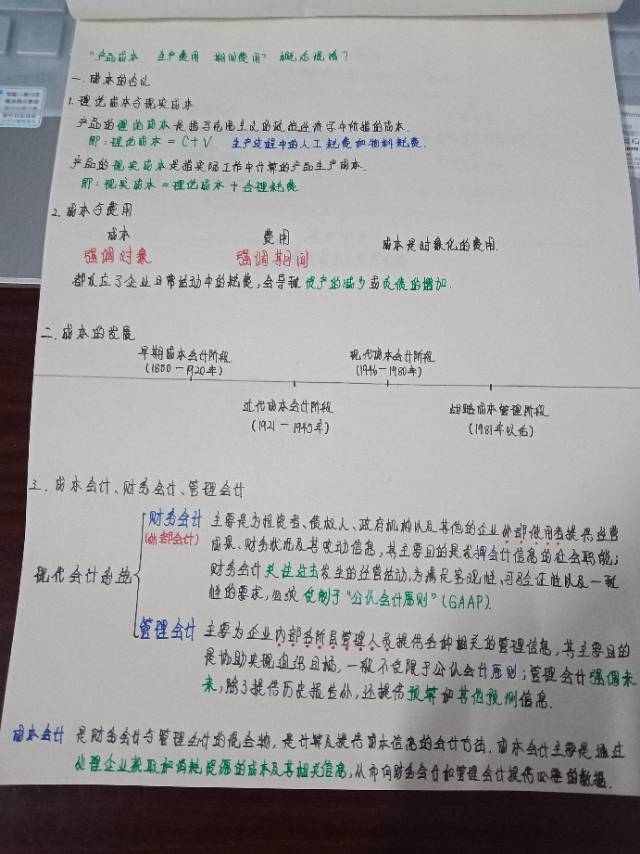 “产品成本 生产费用 期间费用”概念混淆？
一、成本的含义
1. 理论成本与现实成本
产品的理论成本是指马克思主义的政治经济学中价格的成本.
即：理论成本 = C+V 生产过程中的人工耗费和物料耗费.
产品的现实成本是指实际工作中计算的产品生产成本.
即：现实成本 = 理论成本 + 合理耗费
2. 成本与费用
成本 费用 成本是对象化的费用.
强调对象 强调期间
都反应了企业日常活动中的耗费，会导致资产的减少或负债的增加.
二、成本的发展
早期成本会计阶段 现代成本会计阶段
(1800-1920年) (1946-1980年)
近代成本会计阶段 战略成本管理阶段
(1921-1945年) (1981年以后)
三、成本会计、财务会计、管理会计
现代会计系统
财务会计 主要是为投资者、债权人、政府机构以及其他的企业外部使用者提供经营
(外部会计) 成果、财务状况及其变动信息，其主要目的是发挥会计信息的社会职能；
财务会计关注过去发生的经营活动，为满足客观性、可验证性以及一致
性的要求，必须受制于“公认会计原则”(GAAP).
管理会计 主要为企业内部各阶层管理人员提供各种相关的管理信息，其主要目的
是协助实现组织目标，一般不受限于公认会计原则；管理会计强调未
来，除了提供历史报告外，还提供预算和其他预测信息.
成本会计 是财务会计与管理会计的混合物，是计算及提供成本信息的会计方法. 成本会计主要是通过
处理企业获取和消耗资源的成本及其相关信息，从而向财务会计和管理会计提供必要的数据.